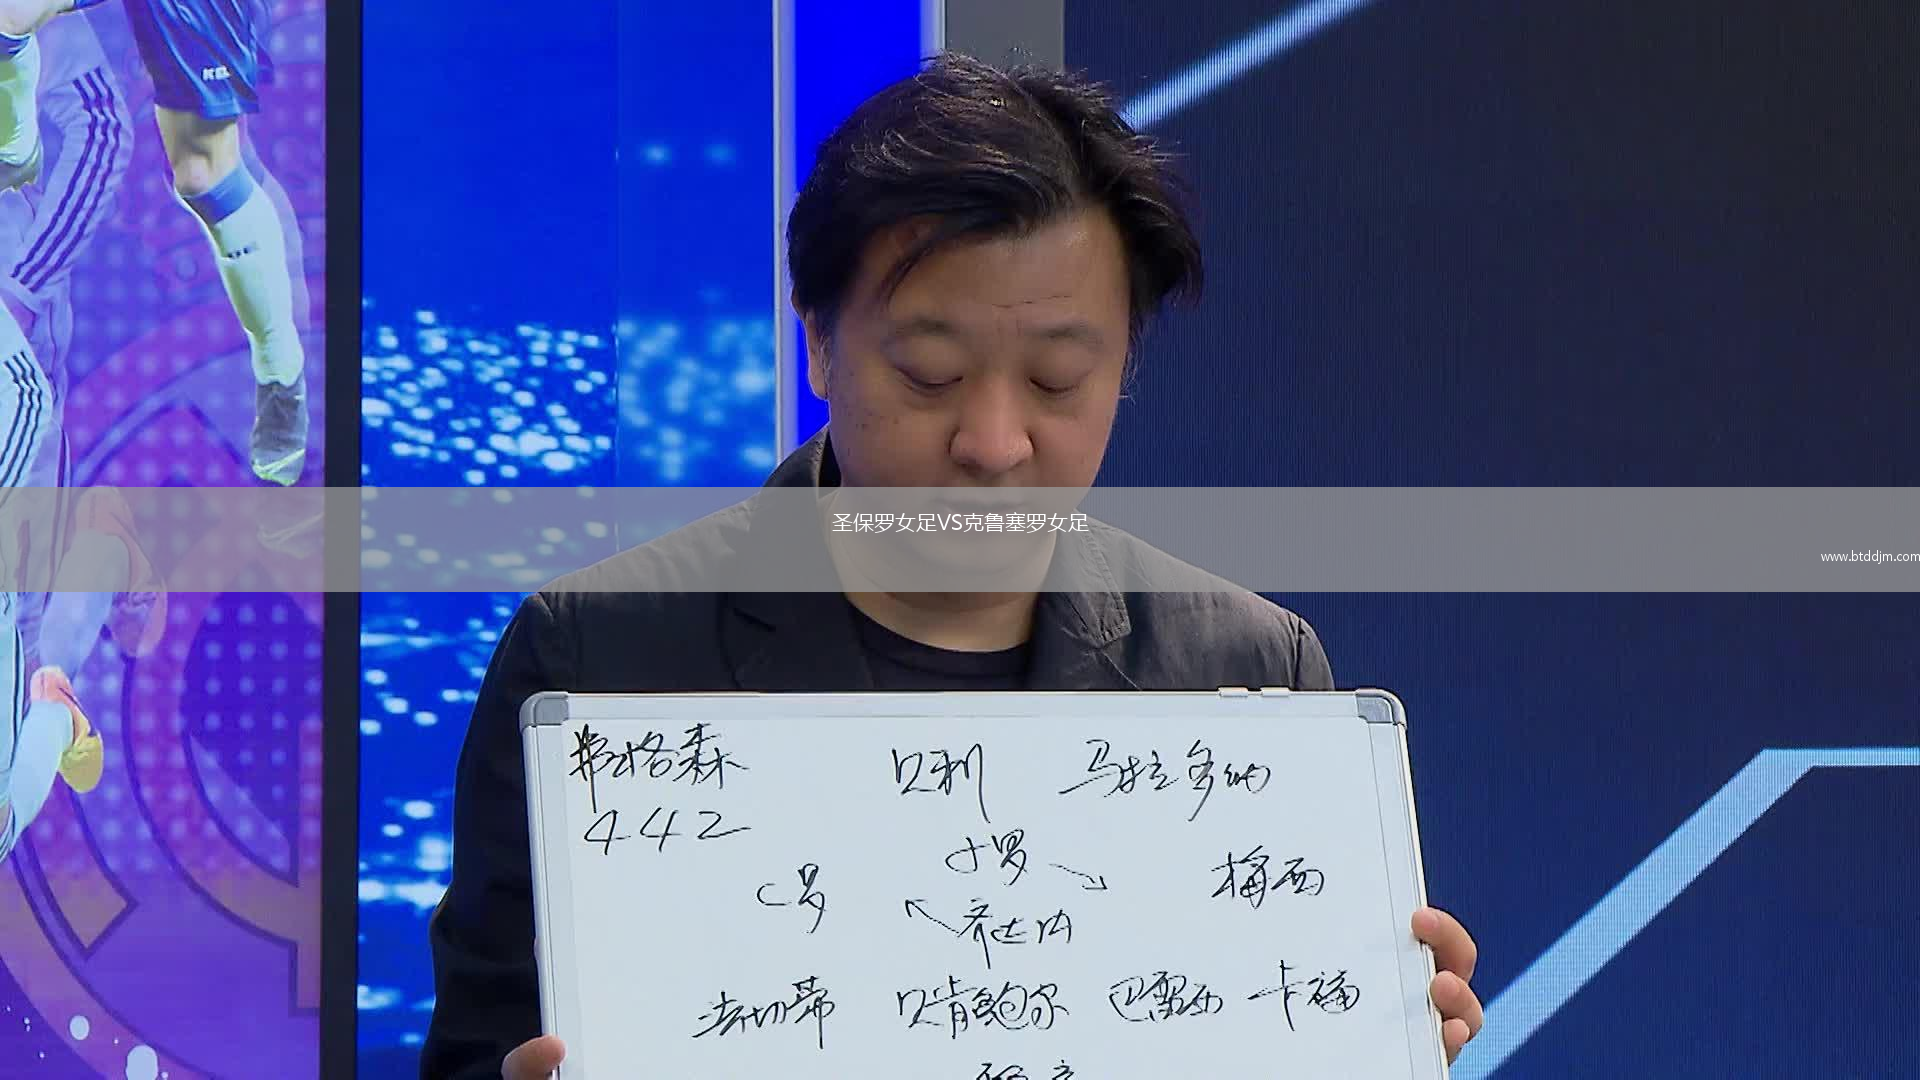 圣保罗女足VS克鲁塞罗女足
www.btddjm.com
弗格森 贝利 马拉多纳
442
小罗
C罗 梅西
齐达内
法切蒂 贝肯鲍尔 巴雷西 卡福